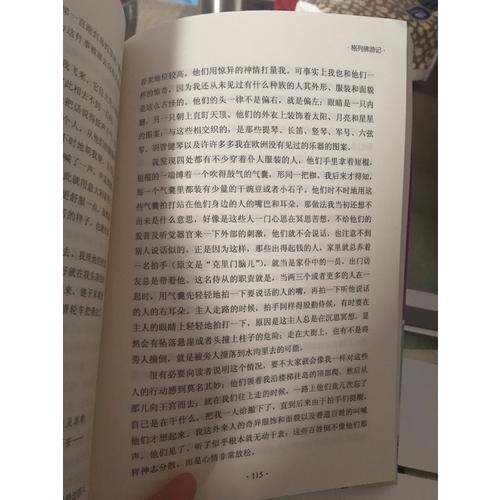 ·格列佛游记·
着来地位较高，他们用惊异的神情打量我。可事实上我也和他们一
样的惊奇，因为我还从未见过有什么种族的人其外形、服装和面貌
是这么古怪的。他们的头一律不是偏右，就是偏左；眼睛是一只内
翻，另一只朝上直盯天顶。他们的外衣上装饰着太阳、月亮和星星
的图案；与这些相交织的，是那些提琴、长笛、竖琴、军号、六弦
琴、羽管键琴以及许许多多我在欧洲没有见过的乐器的图案。
我发现四处都有不少穿着仆人服装的人，他们手里拿着短棍，
短棍的一端缚着一个吹得鼓气的气囊，形同一把枷。我后来才得知，
每一个气囊里都装有少量的干豌豆或者小石子。他们时不时地用这
些气囊拍打站在他们身边的人的嘴巴和耳朵，那做法我当初还想不
出来是什么意思，好像是这些人一门心思在冥思苦想，不给他们的
发音及听觉器官来一下外部的刺激，他们就不会说话，也注意不到
别人说话似的。正是因为这样，那些出得起钱的人，家里就总养着
一名拍手（原文是“克里门脑儿”），就当是家仆中的一员，出门访
友总是带着他。这名侍从的职责就是，当两三个或者更多的人在一
起时，用气囊先轻轻地拍一下要说话的人的嘴，再拍一下听他说话
的人的右耳朵。主人走路的时候，拍手同样得殷勤侍候，有时要在
主人的眼睛上轻轻地打一下，原因是这主人总是在沉思冥想，显
然会有坠落悬崖或者头撞上柱子的危险；走在大街上，也有不是将
旁人撞倒，就是被旁人撞落到水沟里去的可能。
很有必要向读者说明这个情况，要不大家就会像我一样对这些
人的行动感到莫名其妙；他们领着我沿楼梯往岛的顶部爬，然后从
那儿向王宫而去；就在我们往上走的时候，一路上他们竟几次忘了
自己是在干什么，把我一人给撇下了，直到后来由于拍手们提醒，
他们才想起来。我这外来人的奇异服饰和面貌以及普通百姓的叫喊
声，他们见了、听了似乎根本就无动于衷；这些百姓倒不像他们那
样神志分散，而是心情非常放松。
·115·